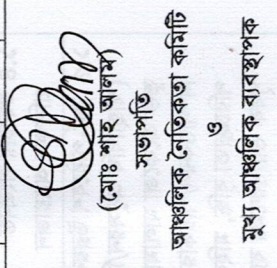 (মোঃ শাহ আলম)
সভাপতি
আঞ্চলিক নৈতিকতা কমিটি
ও
মুখ্য আঞ্চলিক ব্যবস্থাপক